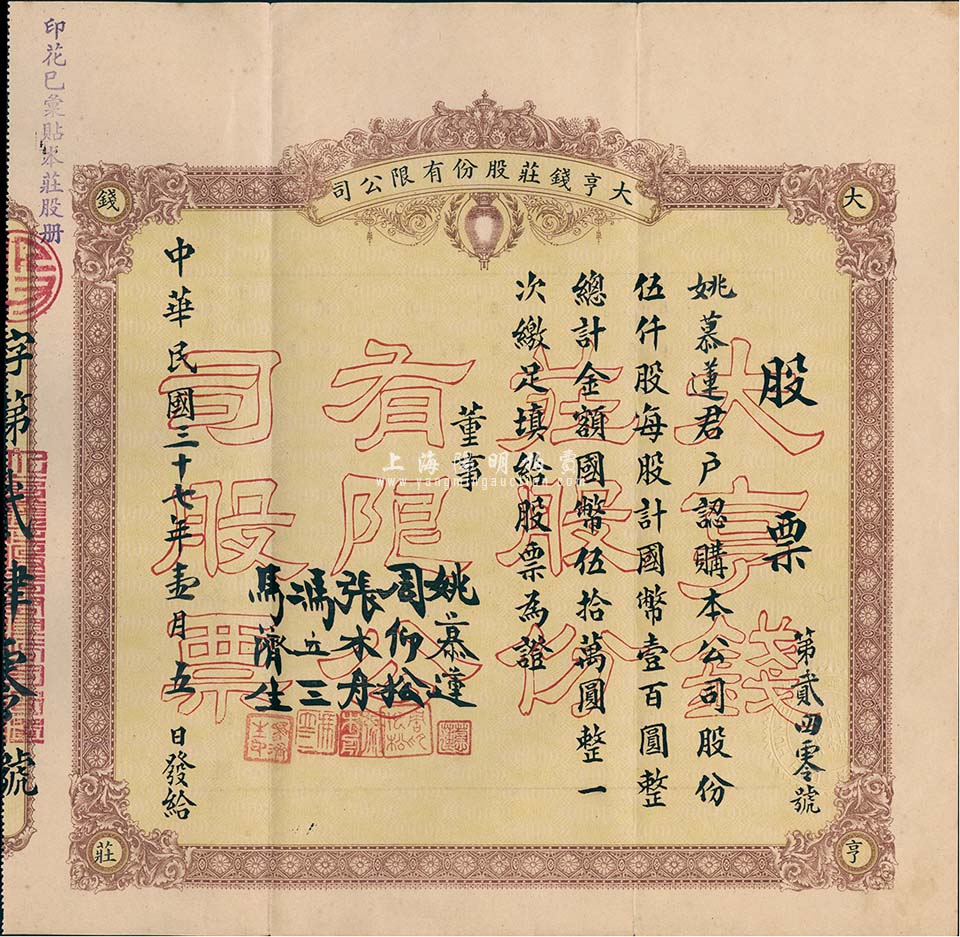 大亨錢莊股份有限公司
大
亨
錢
莊
股票
第貳四零號
姚慕蓮君戶認購本公司股份
伍仟股每股計國幣壹百圓整
總計金額國幣伍拾萬圓整一
次繳足填給股票為證
董事
姚慕蓮
周仰松
張水丹
馮立三
馬濟生
中華民國三十七年壹月五日發給
大亨錢
莊股份
有限公
司股票
印花已彙貼本莊股册
字第貳肆零號
上海陽明拍賣
www.yangmingauction.com